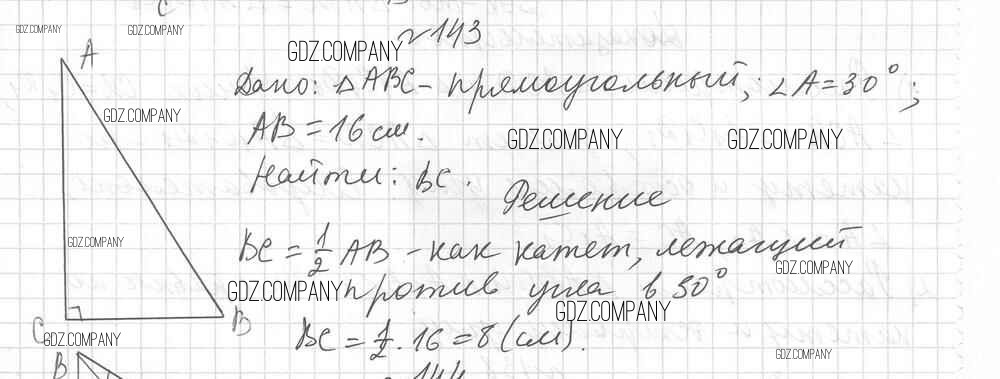 GDZ.COMPANY GDZ.COMPANY
№143
A GDZ.COMPANY
Дано: △ABC - прямоугольный; ∠A = 30°;
GDZ.COMPANY
AB = 16 см. GDZ.COMPANY GDZ.COMPANY
Найти: BC.
Решение
GDZ.COMPANY BC = 1/2 AB - как катет, лежащий
GDZ.COMPANY
GDZ.COMPANY против угла в 30°
C B GDZ.COMPANY
GDZ.COMPANY BC = 1/2 · 16 = 8 (см).
B GDZ.COMPANY
144